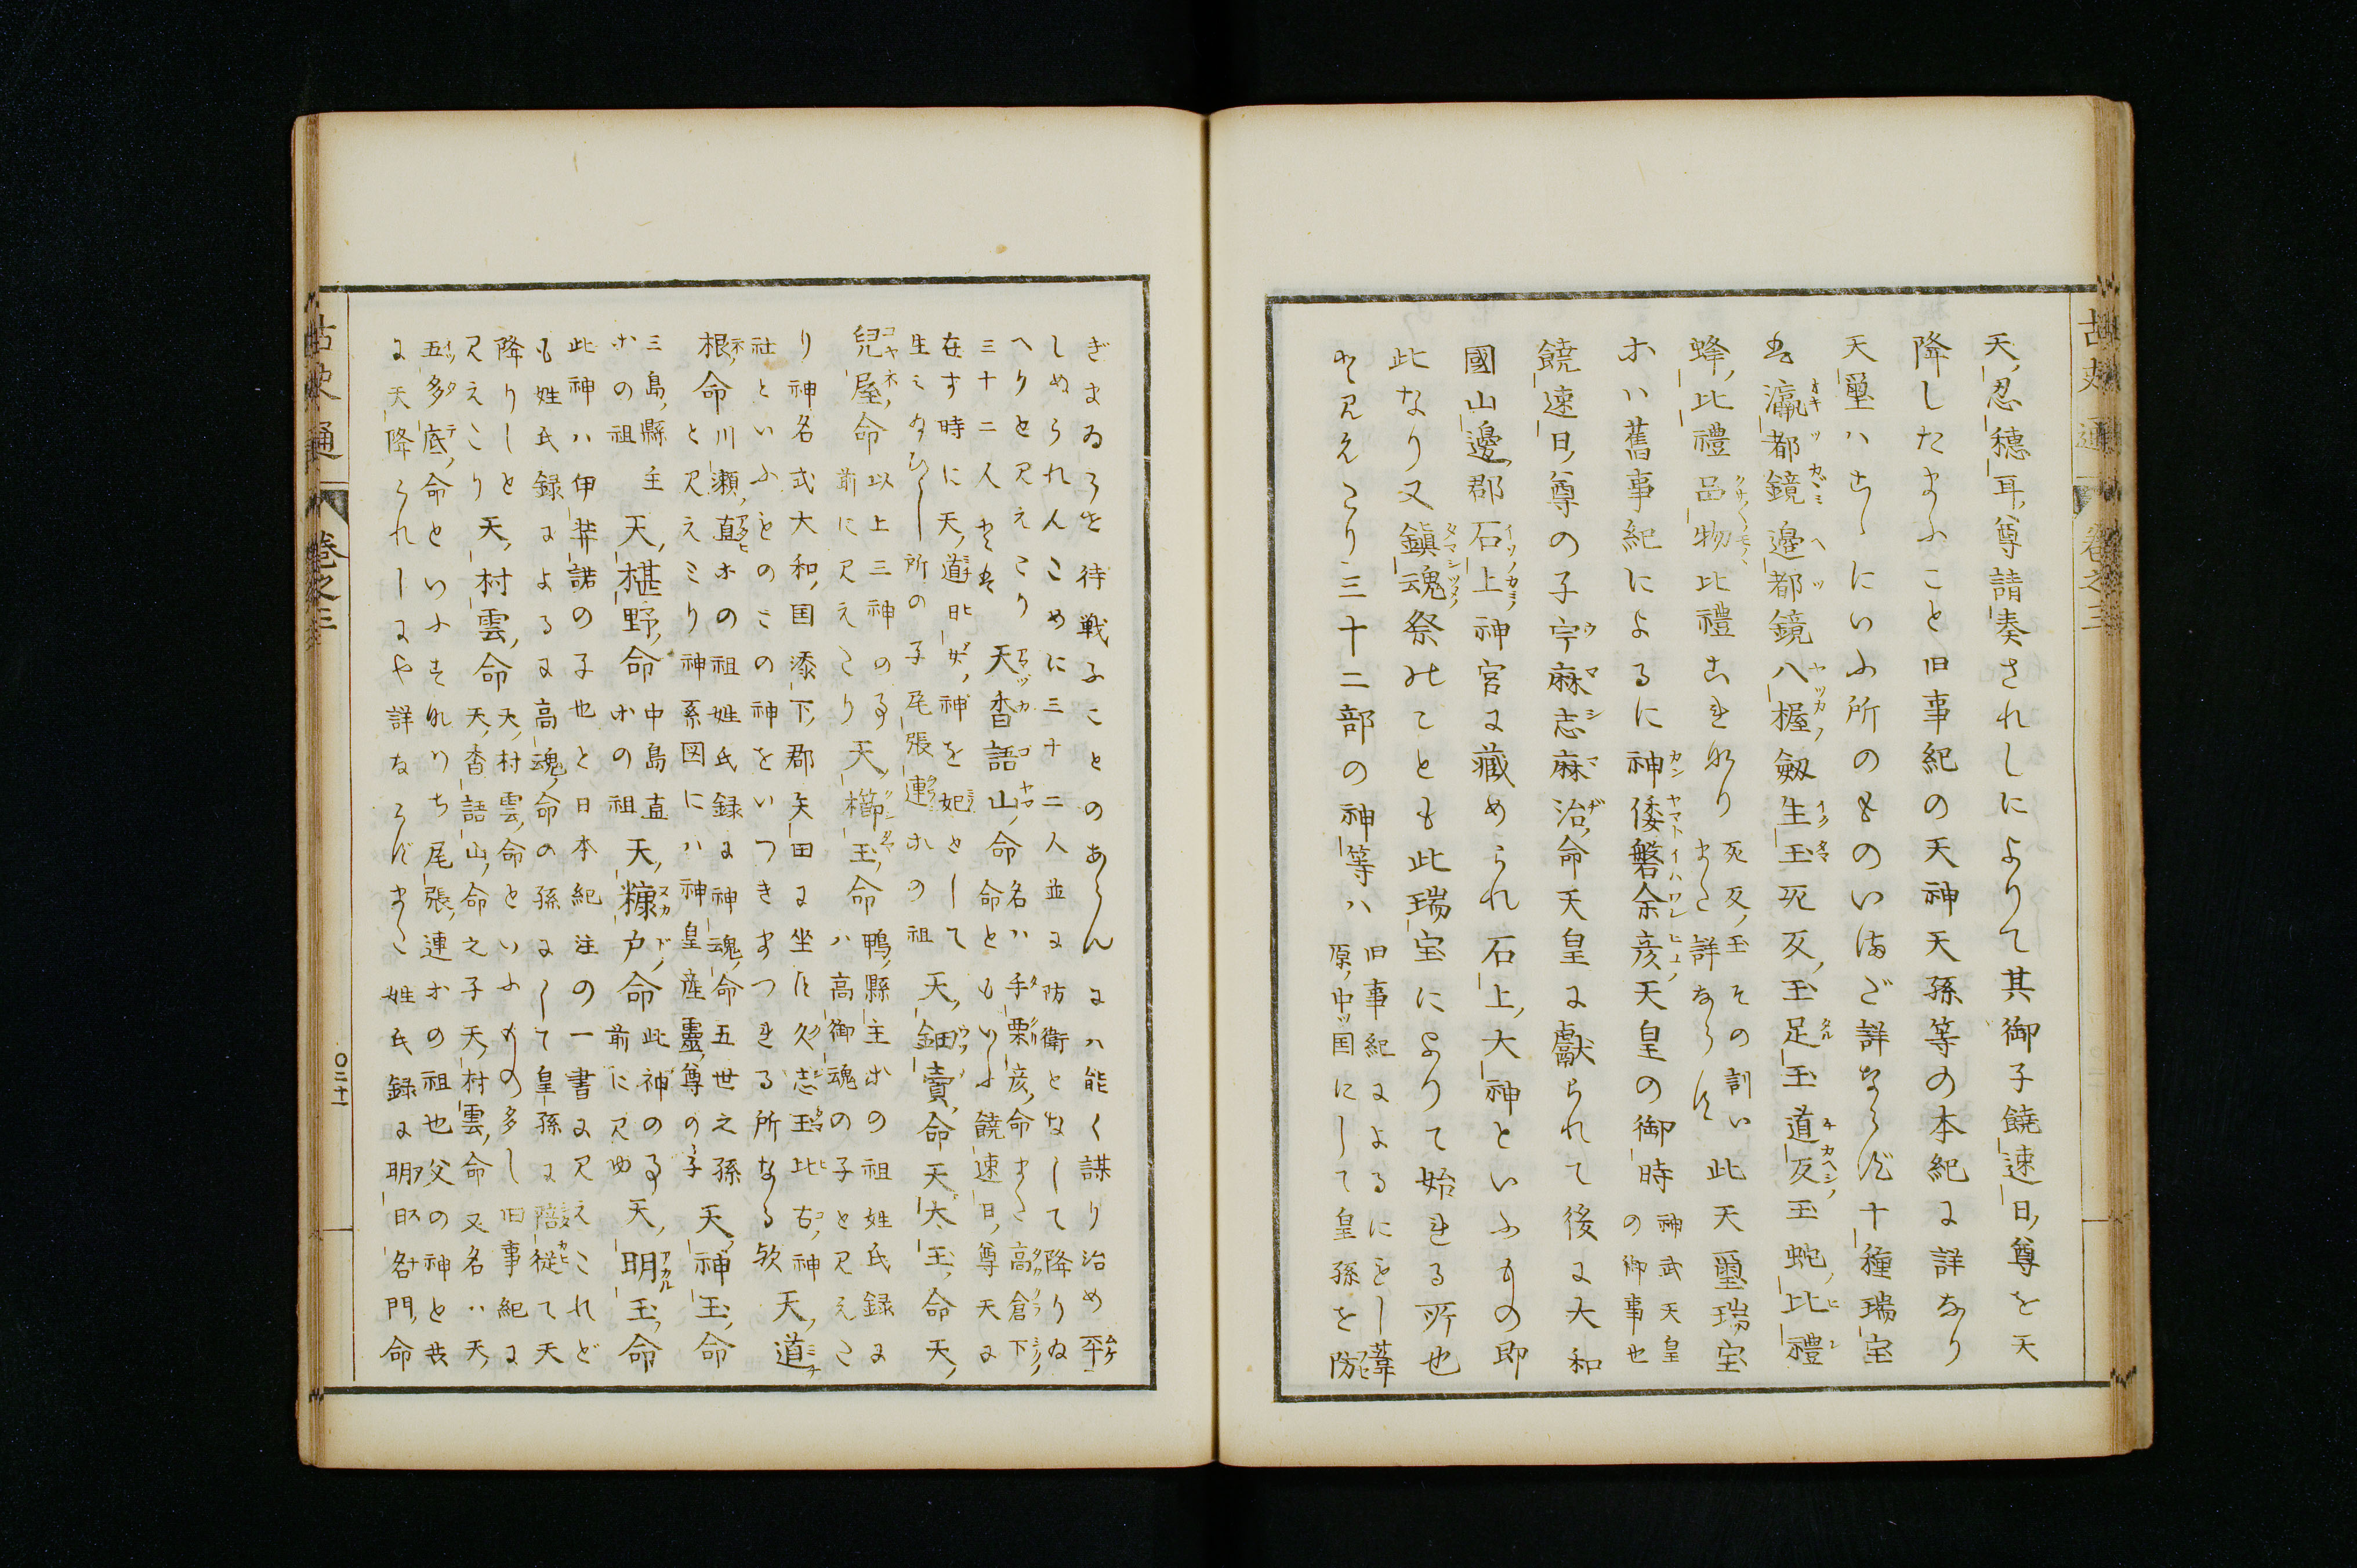 天忍穗耳尊請奏されしによりて其御子饒速日尊を天
降したまふこと旧事紀の天神天孫等の本紀に詳なり
天璽ハこゝにいふ所のものいまだ詳ならず十種瑞宝
瀛都鏡邊都鏡八握劔生玉死反玉足玉道反玉蛇比禮
蜂比禮品物比禮これなり
死反玉その訓い
まだ詳ならず
此天璽瑞宝
ハ舊事紀によるに神倭磐余彦天皇の御時
神武天皇
の御事也
饒速日尊の子宇麻志麻治命天皇に獻られて後に大和
國山邊郡石上神宮に藏められ石上大神といふもの即
此なり又鎭魂祭のことも此瑞宝によりて始れる所也
と見えたり三十二部の神等ハ
旧事紀によるにもし葦
原中国にして皇孫を防
ぎまゐらせ待戦ふことのあらんにハ能く謀り治め平
しめられんために三十二人並に防衛となして降りゐ
へりと見えたり
三十二人
天香語山命
名ハ手栗彦命また高倉下
命ともいふ饒速日尊天に
在す時に天道日女神を妃として
生ミ所の子尾張連ホの祖
天鈿賣命天太玉命天
兒屋命
以上三神の事
前に見えたり
天櫛玉命
鴨縣主ホの祖姓氏録に
ハ高御魂の子と見えた
り神名式大和国添下郡矢田に坐す久志玉比古神
社といふもこの神をいつきまつれる所なる歟
天道
根命
川瀬直ホの祖姓氏録に神魂命五世之孫
と見えミり神系図にハ神皇産靈尊の子
天神玉命
三島縣主
ホの祖
天椹野命
中島直
ホの祖
天糠戸命
此神の事
前に見ゆ
天明玉命
此神ハ伊弉諾の子也と日本紀注の一書に見えたれど
も姓氏録によるに高魂命の孫にして皇孫に陪從て天
降りしと
見えたり
天村雲命
天村雲命といふもの多し旧事紀に
天香語山命之子天村雲命又名ハ天
五多底命といふすなハち尾張連ホの祖也父の神と共
に天降られしにや詳ならずまた姓氏録に明日名門命
古史通
巻之三
〇二十一
古史通
巻之三